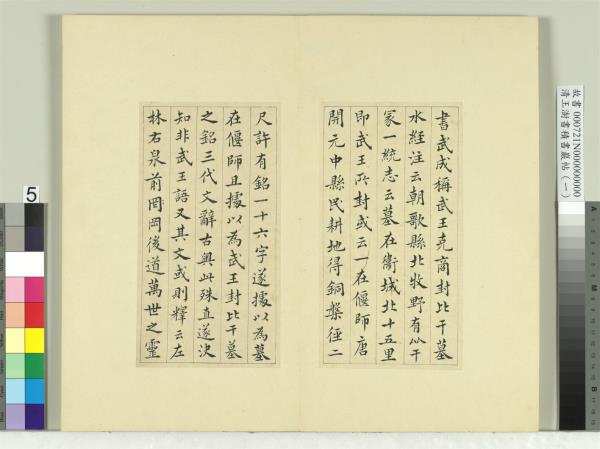 書武成稱武王克商封比干墓
水經注云朝歌縣北牧野有比干
冢一統志云墓在衛城北十五里
即武王所封或云一在偃師唐
開元中縣民耕地得銅槃徑二
尺許有銘一十六字遂據以為墓
在偃師且據以為武王封比干墓
之銘三代文辭古奧此殊直遂決
知非武王語又其文或則釋云左
林右泉前岡後道萬世之靈
故書 000721N000000000
清王澍書積書巖帖(一)
5